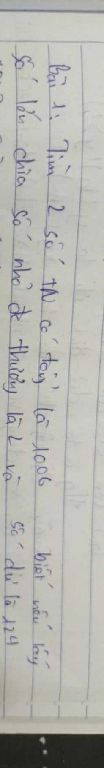 Bài 1: Tìm 2 số TN có tổng là 1006 biết nếu lấy
số lớn chia số nhỏ đc thương là 2 và số dư là 124